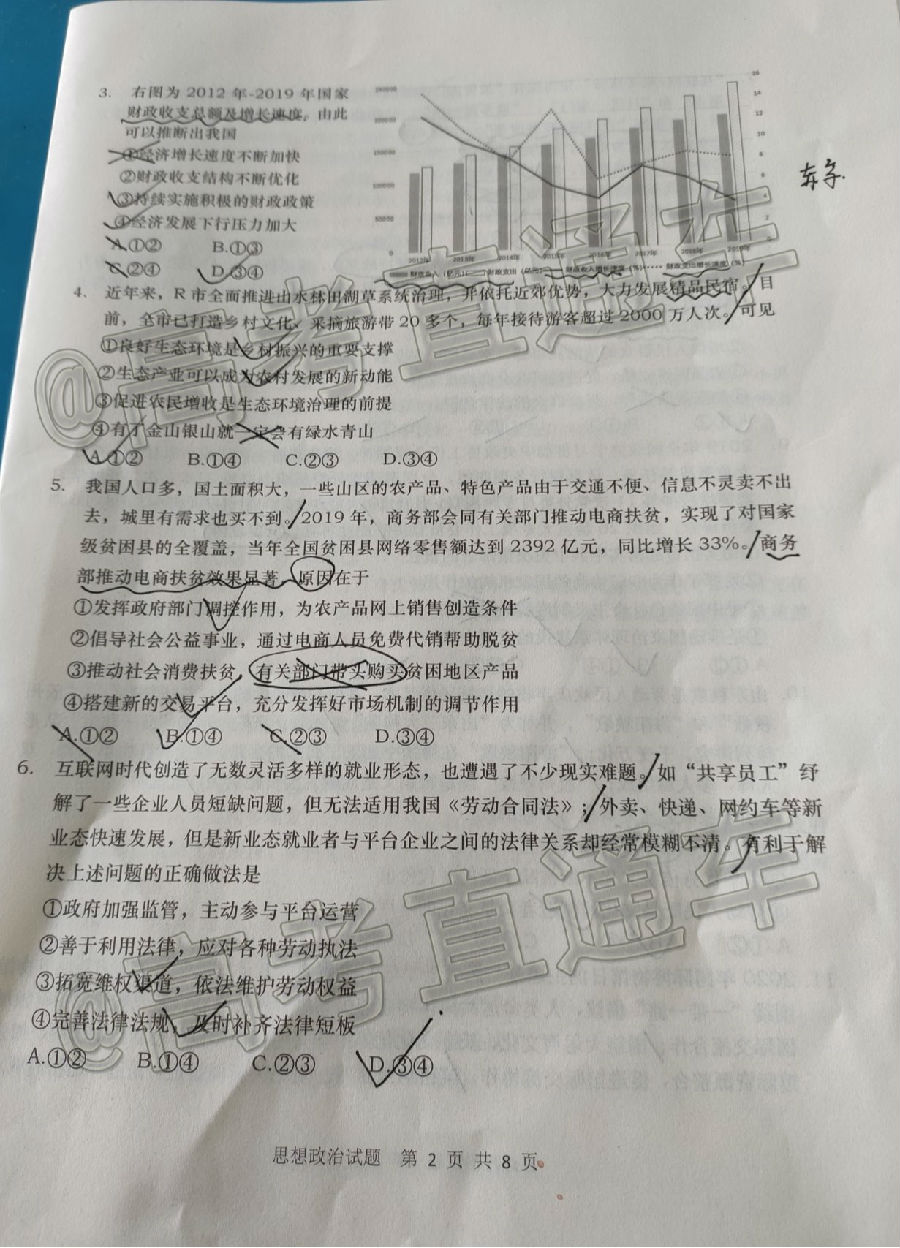 3. 右图为 2012 年-2019 年国家
财政收支总额及增长速度。由此
可以推断出我国
①经济增长速度不断加快
②财政收支结构不断优化
③持续实施积极的财政政策
④经济发展下行压力加大
A.①② B.①③
C.②④ D.③④
2012年 2013年 2014年 2015年 2016年 2017年 2018年 2019年
16
14
12
10
8
6
4
2
财政收入（亿元） 财政支出（亿元） 财政收入增长速度（%） 财政支出增长速度（%）
4. 近年来，R 市全面推进山水林田湖草系统治理，并依托近郊优势，大力发展精品民宿。目
前，全市已打造乡村文化、采摘旅游带 20 多个，每年接待游客超过 2000 万人次。可见
①良好生态环境是乡村振兴的重要支撑
②生态产业可以成为农村发展的新动能
③促进农民增收是生态环境治理的前提
④有了金山银山就一定会有绿水青山
A.①② B.①④ C.②③ D.③④
5. 我国人口多，国土面积大，一些山区的农产品、特色产品由于交通不便、信息不灵卖不出
去，城里有需求也买不到。2019 年，商务部会同有关部门推动电商扶贫，实现了对国家
级贫困县的全覆盖，当年全国贫困县网络零售额达到 2392 亿元，同比增长 33%。商务
部推动电商扶贫效果显著，原因在于
①发挥政府部门调控作用，为农产品网上销售创造条件
②倡导社会公益事业，通过电商人员免费代销帮助脱贫
③推动社会消费扶贫，有关部门带头购买贫困地区产品
④搭建新的交易平台，充分发挥好市场机制的调节作用
A.①② B.①④ C.②③ D.③④
6. 互联网时代创造了无数灵活多样的就业形态，也遭遇了不少现实难题。如“共享员工”纾
解了一些企业人员短缺问题，但无法适用我国《劳动合同法》；外卖、快递、网约车等新
业态快速发展，但是新业态就业者与平台企业之间的法律关系却经常模糊不清。有利于解
决上述问题的正确做法是
①政府加强监管，主动参与平台运营
②善于利用法律，应对各种劳动执法
③拓宽维权渠道，依法维护劳动权益
④完善法律法规，及时补齐法律短板
A.①② B.①④ C.②③ D.③④
思想政治试题 第 2 页 共 8 页
@高考直通车
@高考直通车